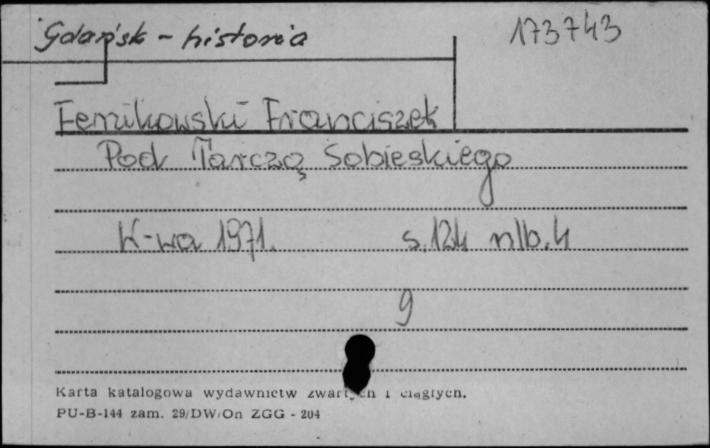 Gdańsk - historia 173743
Fenikowski Franciszek
Pod Tarczą Sobieskiego
W-wa 1971. s. 124 nlb. 4
9
Karta katalogowa wydawnictw zwartych i ciągłych.
PU-B-144 zam. 29/DW/On ZGG - 204